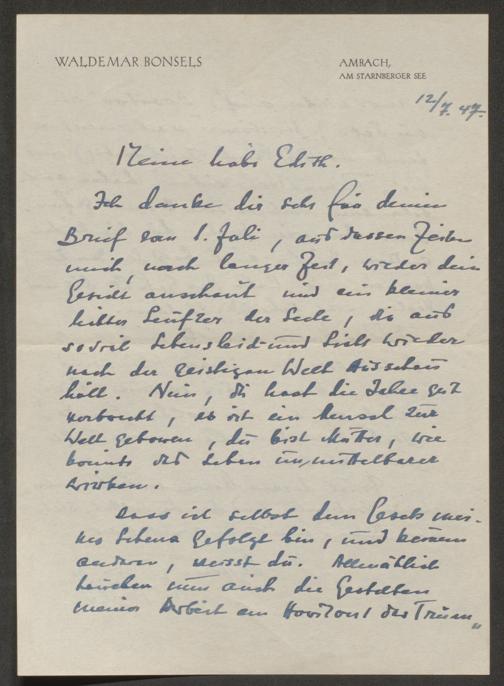 WALDEMAR BONSELS
AMBACH,
AM STARNBERGER SEE
12/7. 47.
Meine liebe Edith.
Ich danke dir sehr für deinen
Brief vom 1. Juli, aus dessen Zeilen
mich, nach langer Zeit, wieder dein
Gesicht anschaut und ein kleiner
heller Seufzer der Seele, die aus
soviel Lebensleid und Licht wieder
nach der geistigen Welt Ausschau
hält. Nein, du hast die Jahre gut
verbracht, es ist ein Mensch zur
Welt geboren, du bist Mutter, wie
könnte das Leben unmittelbarer
wirken.
Dass ich selbst dem Gesetz mei-
nes Lebens gefolgt bin, und keinem
anderen, weisst du. Allmählich
tauchen nun auch die Gestalten
meiner Arbeit am Horizont der Träum